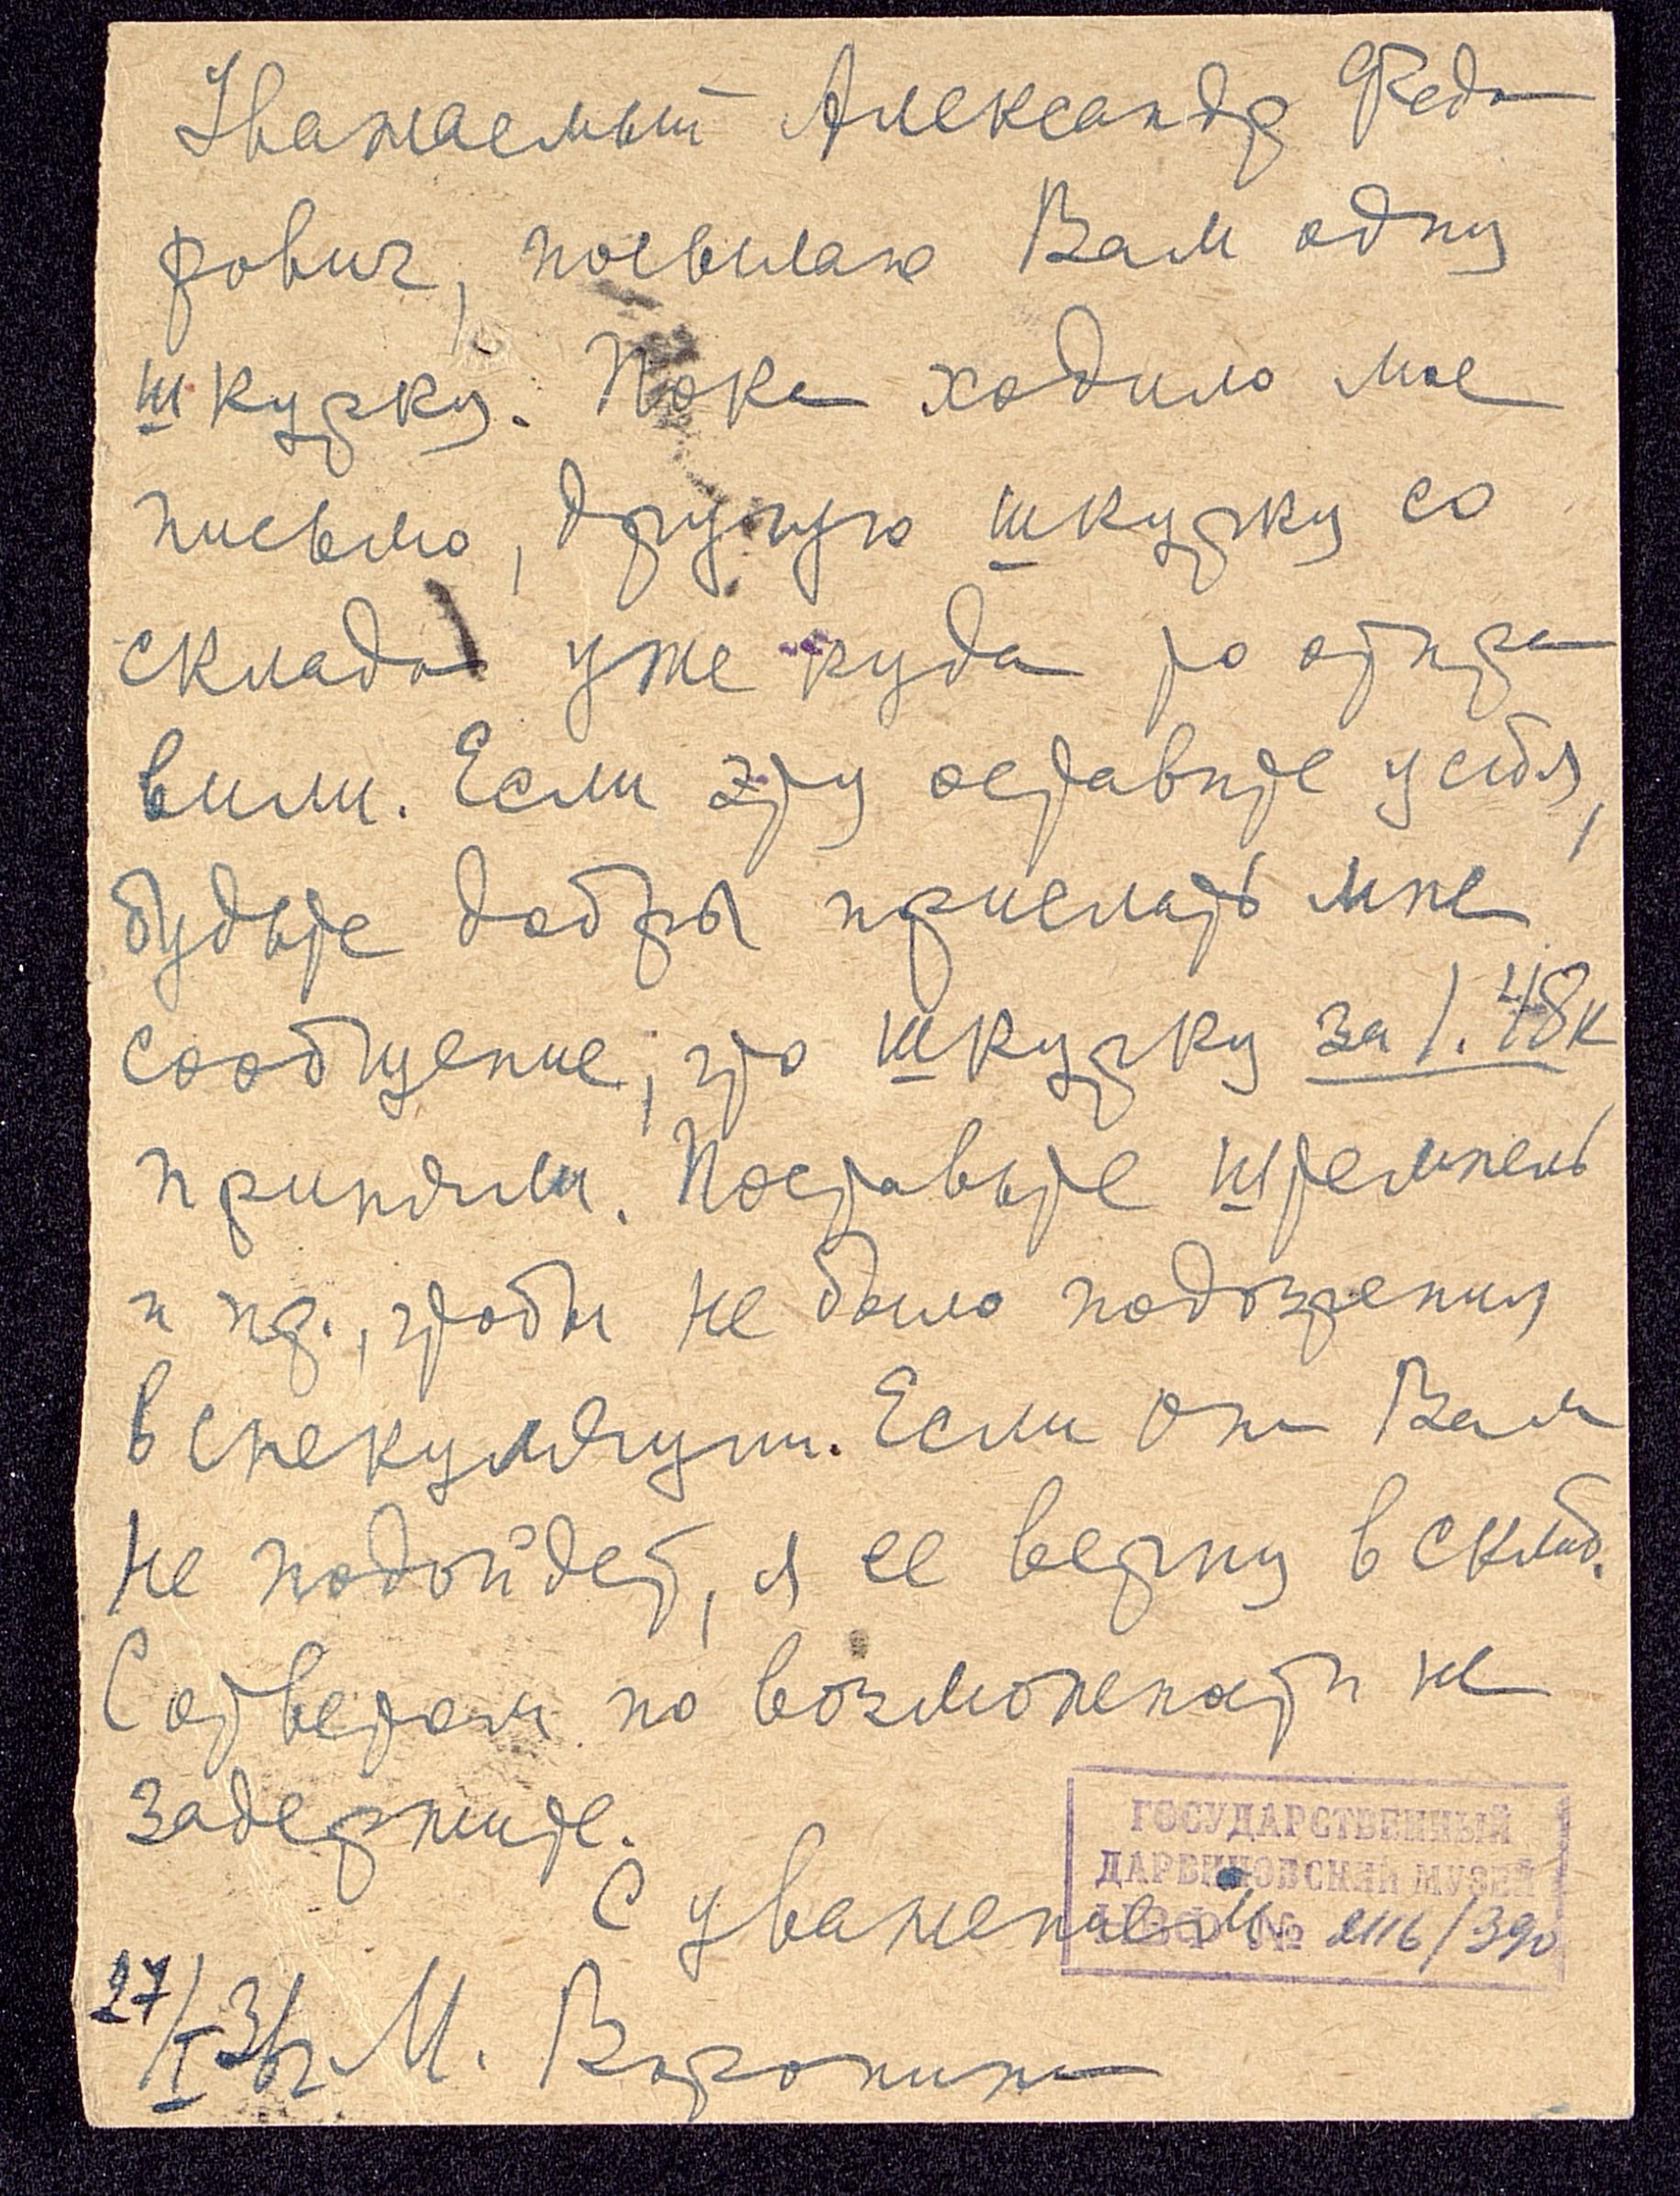 Уважаемый Александр Федо
рович, посылаю Вам одну
шкурку. Пока ходило мое
письмо, другую шкурку со
склада уже куда то отпра
вили. Если эту оставите у себя,
будьте добры прислать мне
сообщение, что шкурку за 1.48к
приняли. Поставьте штемпель
и пр., чтобы не было подозрения
в спекуляции. Если она Вам
не подойдет, я ее верну в склад.
С ответом по возможности не
задержите.
С уважением
27/I 36г. М. Воронин
ГОСУДАРСТВЕННЫЙ
ДАРВИНОВСКИЙ МУЗЕЙ
№ 2116/390